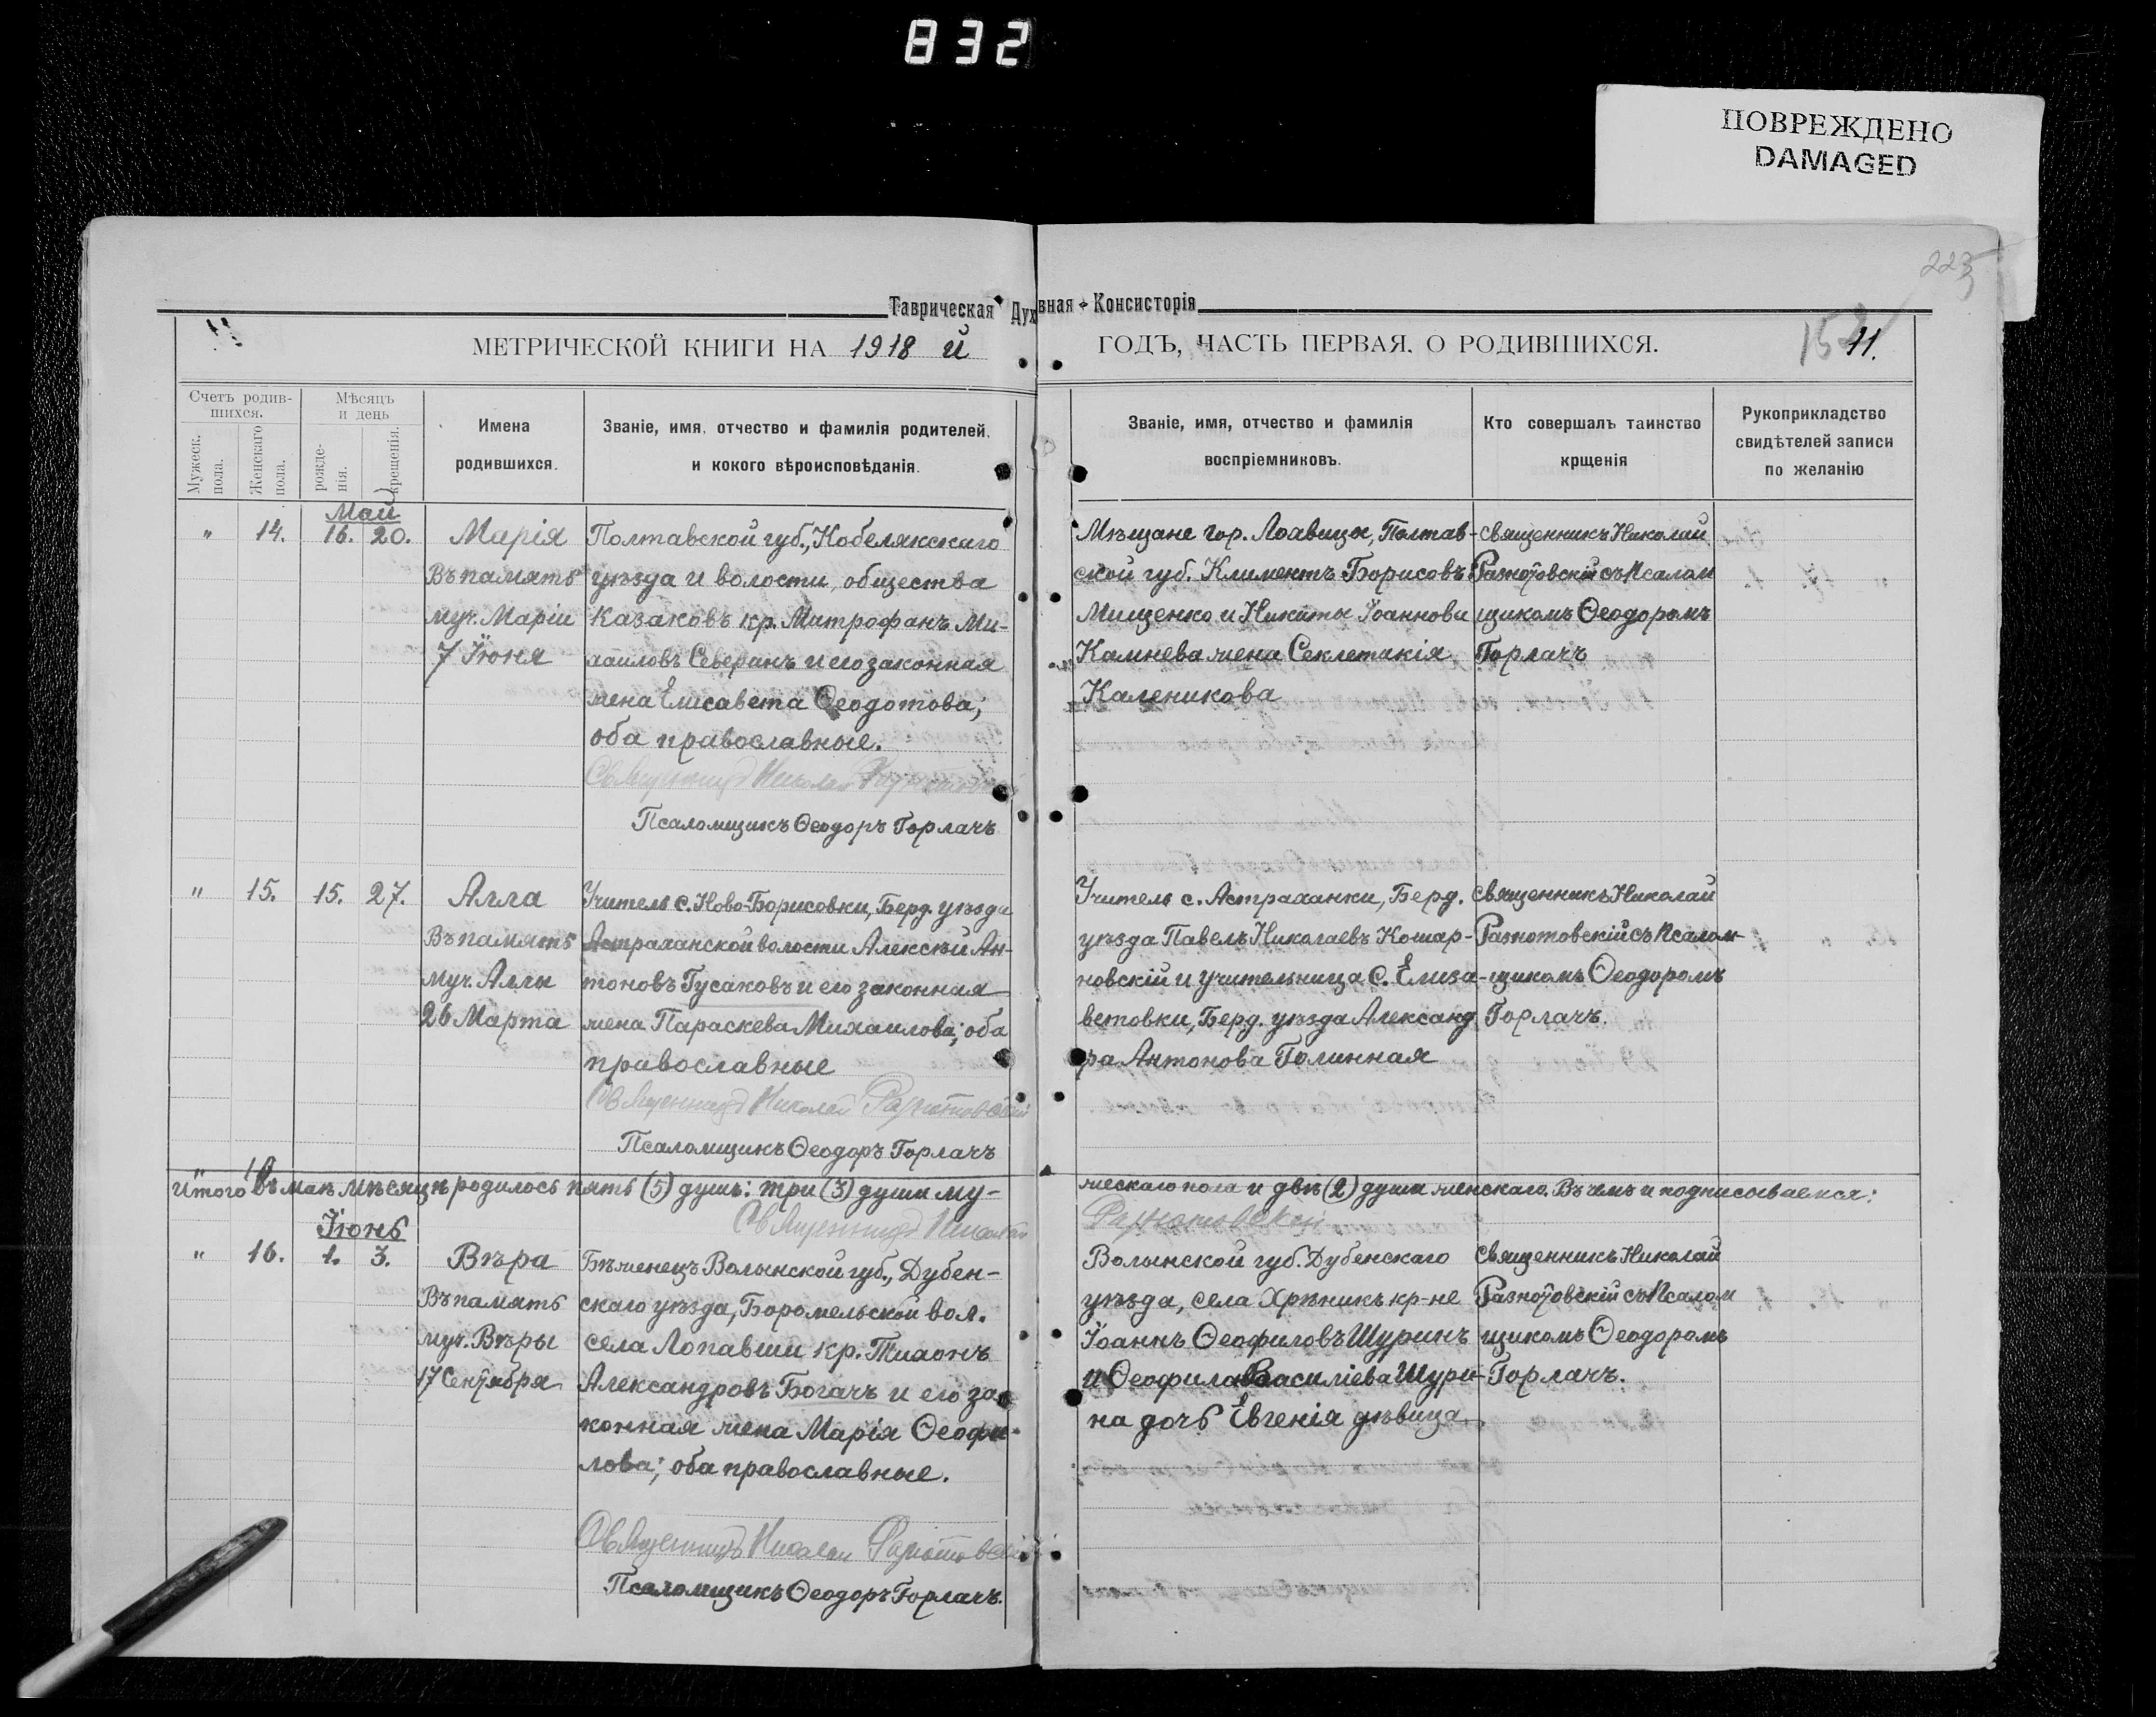 832
ПОВРЕЖДЕНО
DAMAGED
223
Таврическая Духовная Консисторія
МЕТРИЧЕСКОЙ КНИГИ НА 1918 й ГОДЪ, ЧАСТЬ ПЕРВАЯ. О РОДИВШИХСЯ.
11.
Счетъ родив-
шихся.
Мужеск.
пола.
Женскаго
пола.
Мѣсяцъ
и день
рожде-
нія.
крещенія.
Имена
родившихся.
Званіе, имя, отчество и фамилія родителей,
и кокого вѣроисповѣданія.
Званіе, имя, отчество и фамилія
воспріемниковъ.
Кто совершалъ таинство
крщенія
Рукоприкладство
свидѣтелей записи
по желанію
Май
" 14. 16. 20.
Марія
Въ память
муч. Маріи
7 Іюня
Полтавской губ., Кобелякскаго
уѣзда и волости, общества
Казаковъ кр. Митрофанъ Ми-
хаиловъ Северанъ и его законная
жена Елисавета Ѳеодотова;
оба православные.
Священникъ Николай
Псаломщикъ Ѳеодоръ Горлачъ
Мѣщане гор. Полтав-
ской губ. Климентъ Борисовъ
Мищенко и Никиты Іоаннова
Камнева жена
Каленикова
Священникъ Николай
Разнотовскій съ Псалом
щикомъ Ѳеодоромъ
Горлачъ
" 15. 15. 27.
Алла
Въ память
муч. Аллы
26 Марта
Учитель с. Ново-Борисовки, Берд. уѣзда
Астраханской волости Алексѣй Ан-
тоновъ Гусаковъ и его законная
жена Параскева Михаилова; оба
православные
Священникъ Николай Разнотовскій
Псаломщикъ Ѳеодоръ Горлачъ
Учитель с. Астраханки, Берд.
уѣзда Павелъ Николаевъ Кошар-
новскій и учительница С. Елиза-
ветовки, Берд. уѣзда Александ
ра Антонова Голинная
Священникъ Николай
Разнотовскій съ Псалом-
щикомъ Ѳеодоромъ
Горлачъ.
Итого въ маѣ мѣсяцѣ родилось пять (5) душъ: три (3) души му-
жескаго пола и двѣ (2) души женскаго. Въ чемъ и подписываемся:
Священникъ Николай Разнотовскій
Іюнь
" 16. 1. 3.
Вѣра
Въ память
муч. Вѣры
17 Сентября
Бѣженецъ Волынской губ., Дубен-
скаго уѣзда, Боромельской вол.
села Лопавши кр. Тихонъ
Александровъ Богачъ и его за-
конная жена Марія Ѳеофи-
лова; оба православные.
Священникъ Николай Разнотовскій
Псаломщикъ Ѳеодоръ Горлачъ.
Волынской губ. Дубенскаго
уѣзда, села Хрѣникъ кр-не
Іоаннъ Ѳеофиловъ Шуринъ
и Ѳеофила Василіева Шури-
на дочь Евгенія дѣвица
Священникъ Николай
Разнотовскій съ Псалом
щикомъ Ѳеодоромъ
Горлачъ.